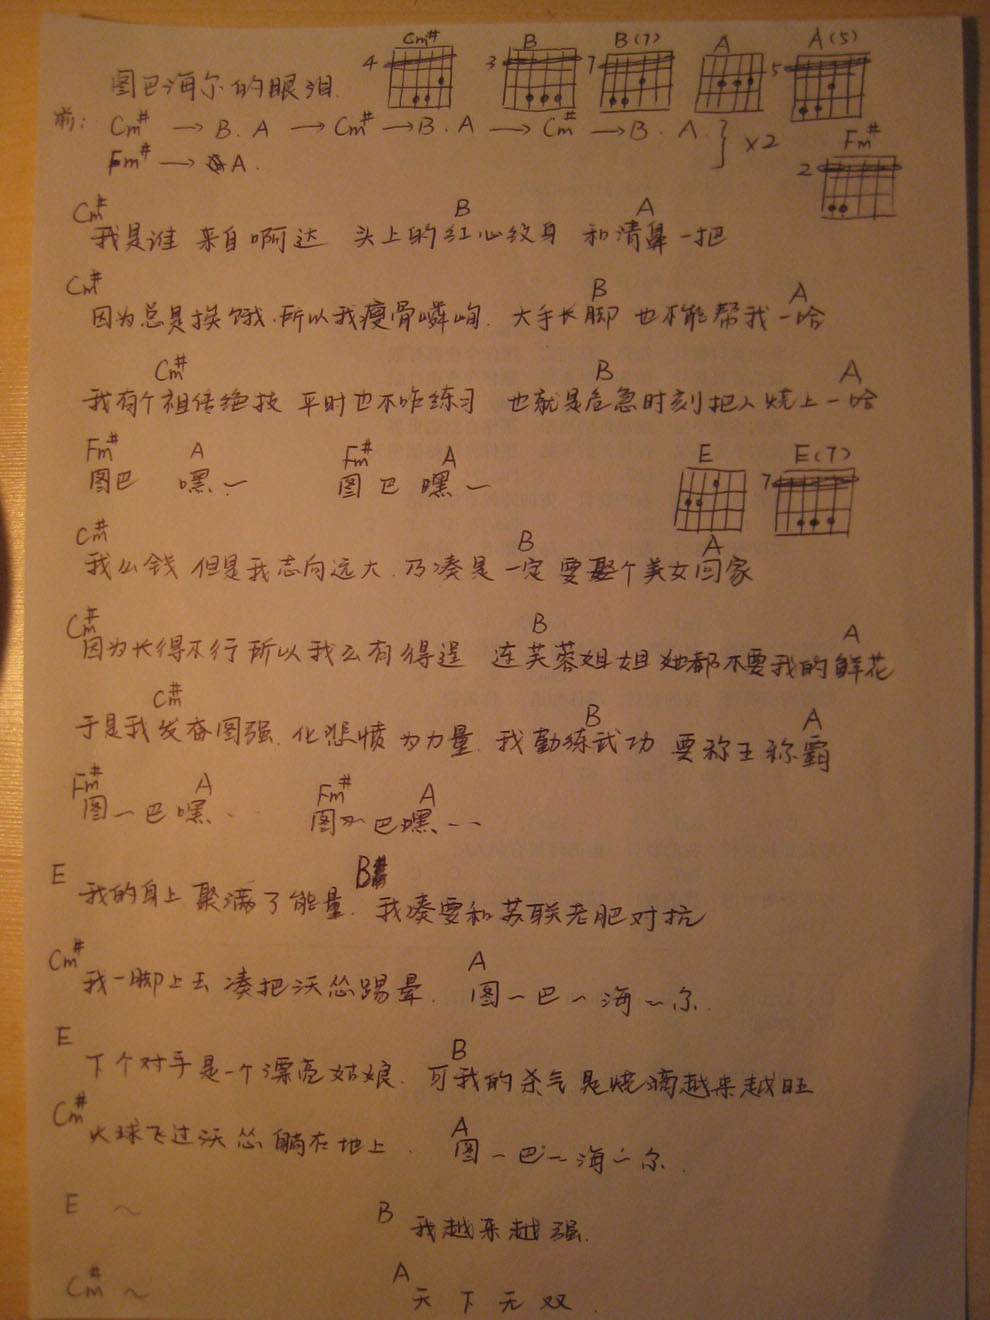 Cm# B B(7) A A(5)
4 3 7 5
图巴海尔的眼泪.
前: Cm# → B . A → Cm# → B . A → Cm# → B . A . } ×2
Fm# → A .
Fm#
2
Cm# B A
我是谁 来自啊达 头上的红心纹身 和清鼻一把
Cm# B A
因为总是挨饿我.所以我瘦骨嶙峋. 大手长脚 也不能帮我一哈
Cm# B A
我有个祖传绝技 平时也不咋练习 也就是危急时刻把人烧上一哈
Fm# A Fm# A
图巴 嘿~ 图巴嘿~
E E(7)
7
C# B A
我么钱 但是我志向远大.乃凑是一定要娶个美女回家
C# B A
因为长得不行所以我么有得逞 连芙蓉姐姐她都不要我的鲜花
C# B A
于是我发奋图强.化悲愤为力量.我勤练武功 要称王称霸
Fm# A Fm# A
图一巴嘿.. 图 巴嘿~~
E B
我的身上聚满了能量. 我凑要和苏联老肥对抗
Cm# A
我一脚上去 凑把沃怂踢晕. 图~巴~海~尔.
E B
下个对手是一个漂亮姑娘. 可我的杀气是烧滴越来越旺
Cm# A
火球飞过沃怂躺在地上. 图~巴~海~尔.
E ~ B 我越来越强.
Cm# ~ A
天下无双.